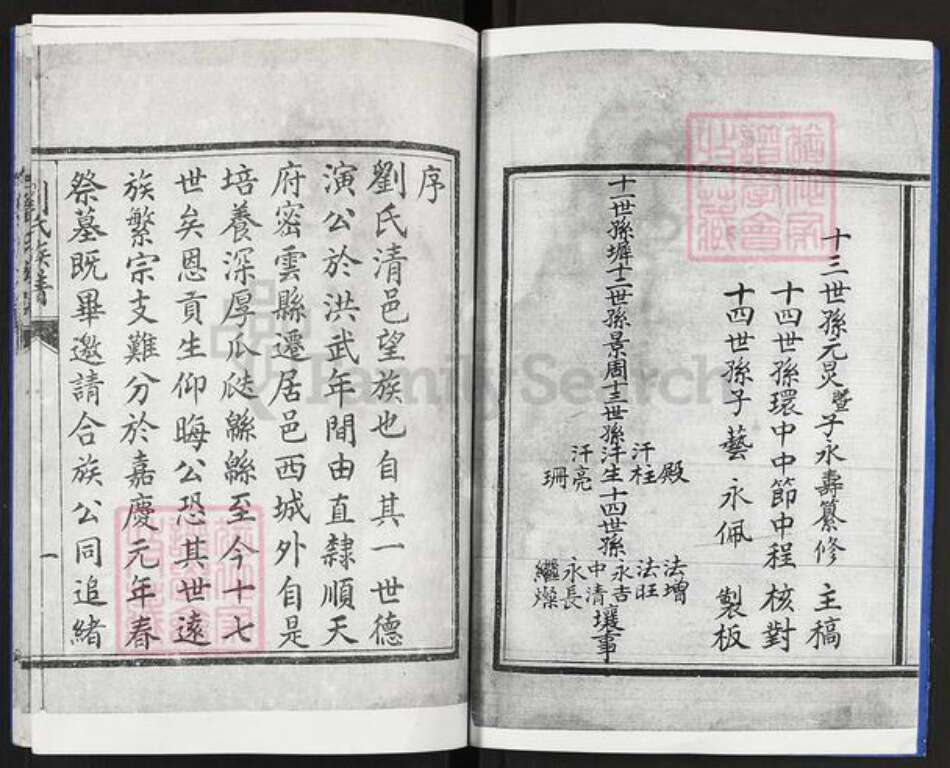 十三世孫元炅暨子永壽纂修 主稿
十四世孫環中中節中程 核對
十四世孫子藝 永佩 製板
殿 法增
汗柱 法旺
十一世孫墀十二世孫景周十三世孫汗生十四世孫永吉
汗亮 中清襄事
珊 永長
繼燦
序
劉氏清邑望族也自其一世德
演公於洪武年間由直隸順天
府密雲縣遷居邑西城外自是
培養深厚瓜瓞緜緜至今十七
世矣恩貢生仰晦公恐其世遠
族繁宗支難分於嘉慶元年春
祭墓既畢邀請合族公同追緒
劉氏族譜
一
FamilySearch